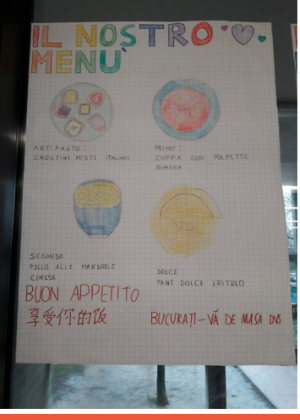 IL NOSTRO
MENÙ
ANTIPASTO:
CROSTINI MISTI ITALIANI
PRIMO:
ZUPPA CON POLPETTE
RUMENA
SECONDO
POLLO ALLE MANDORLE
CINESE
DOLCE
PANE DOLCE ERITREO
BUON APPETITO
享受你的饭
BUCURAȚI-VĂ DE MASA DVS